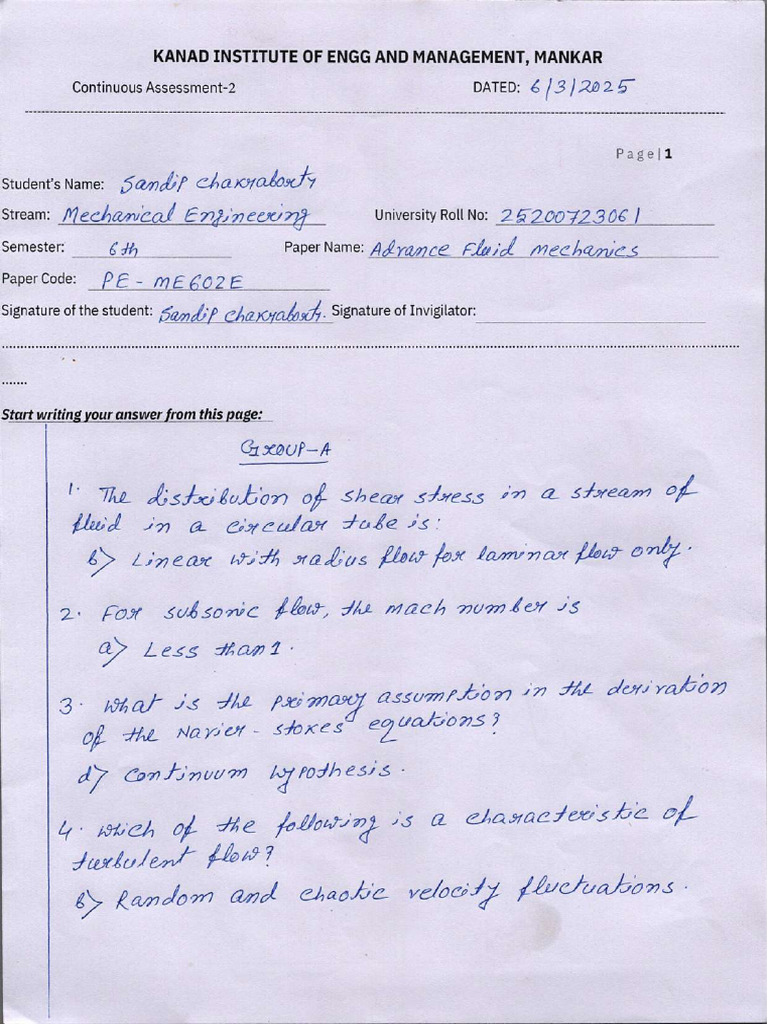 KANAD INSTITUTE OF ENGG AND MANAGEMENT, MANKAR
Continuous Assessment-2 DATED: 6/3/2025
Page|1
Student's Name: Sandip Chakraborty
Stream: Mechanical Engineering University Roll No: 25200723061
Semester: 6th Paper Name: Advance Fluid Mechanics
Paper Code: PE - ME602E
Signature of the student: Sandip Chakraborty. Signature of Invigilator:
Start writing your answer from this page:
GROUP-A
1. The distribution of shear stress in a stream of
fluid in a circular tube is:
b) Linear with radius flow for laminar flow only.
2. For subsonic flow, the mach number is
a) Less than 1.
3. What is the primary assumption in the derivation
of the Navier - stokes equations?
d) Continuum Hypothesis.
4. which of the following is a characteristic of
turbulent flow?
b) Random and chaotic velocity fluctuations.